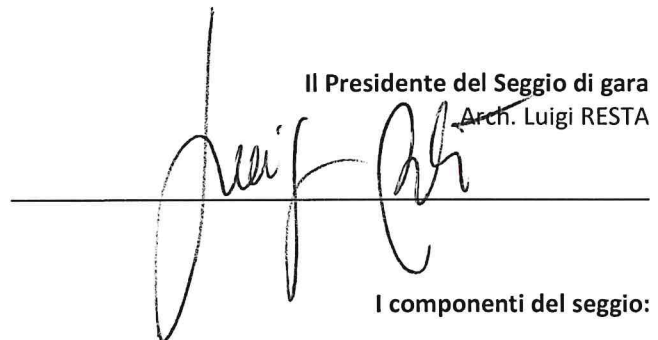 Il Presidente del Seggio di gara
Arch. Luigi RESTA
I componenti del seggio: